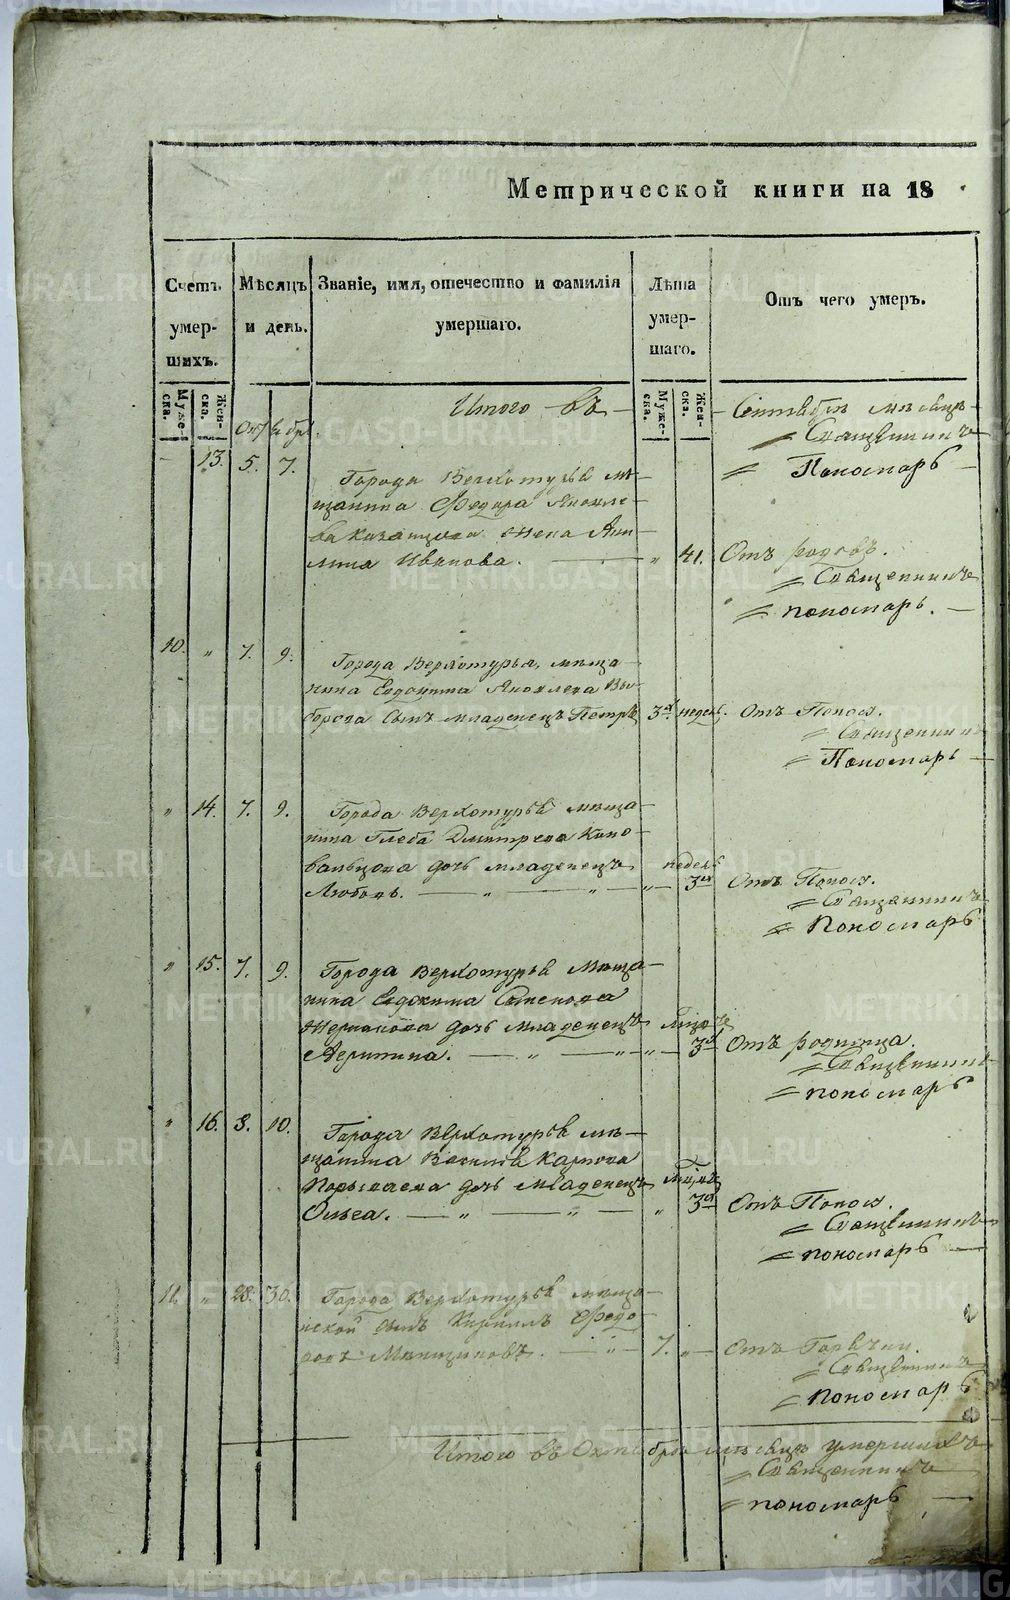 Метрической книги на 18
Счетъ умер-шихъ.
Муже-ска.
Жен-ска.
Мѣсяцъ и день.
Званіе, имя, отечество и фамилія умершаго.
Лѣта умер-шаго.
Муже-ска.
Жен-ска.
Отъ чего умеръ.
Итого въ — Сентябрѣ мѣсяцѣ
Октябрь.
Священникъ
Пономарь —
13. 5. 7.
Города Верхотурья мѣ-
щанина Федора Яковле-
ва жена
Иванова. — „ 41. Отъ родовъ.
Священникъ
пономарь. —
10. „ 7. 9.
Города Верхотурья, мѣща-
нина Евдокима Яковлева Вы-
борова сынъ младенецъ Петръ 3х недель. Отъ Поноса.
Священникъ
Пономарь —
„ 14. 7. 9.
Города Верхотурья мѣща-
нина Глеба Дмитрева Коно-
вальцова дочь младенецъ недель
Любовь. — „ — „ — „ — 3хъ Отъ Поноса.
Священникъ
Пономарь
„ 15. 7. 9.
Города Верхотурья Мѣща-
нина Евдокима Семенова
дочь младенецъ
— „ — „ — „ — 3х Отъ родимца.
Священникъ
пономарь
„ 16. 8. 10.
Города Верхотурья мѣ-
щанина Карпова
дочь младенецъ
Ольга. — „ — „ — „ 3х Отъ Поноса.
Священникъ
пономарь —
11. „ 28. 30.
Города Верхотурья мѣща-
нской сынъ Кириллъ Федо-
ровъ — „ — 7. „ — Отъ Горячки.
Священникъ
пономарь
Итого въ Октябрѣ мѣсяцѣ умершихъ
Священникъ
пономарь —
METRIKI.GASO-URAL.RU